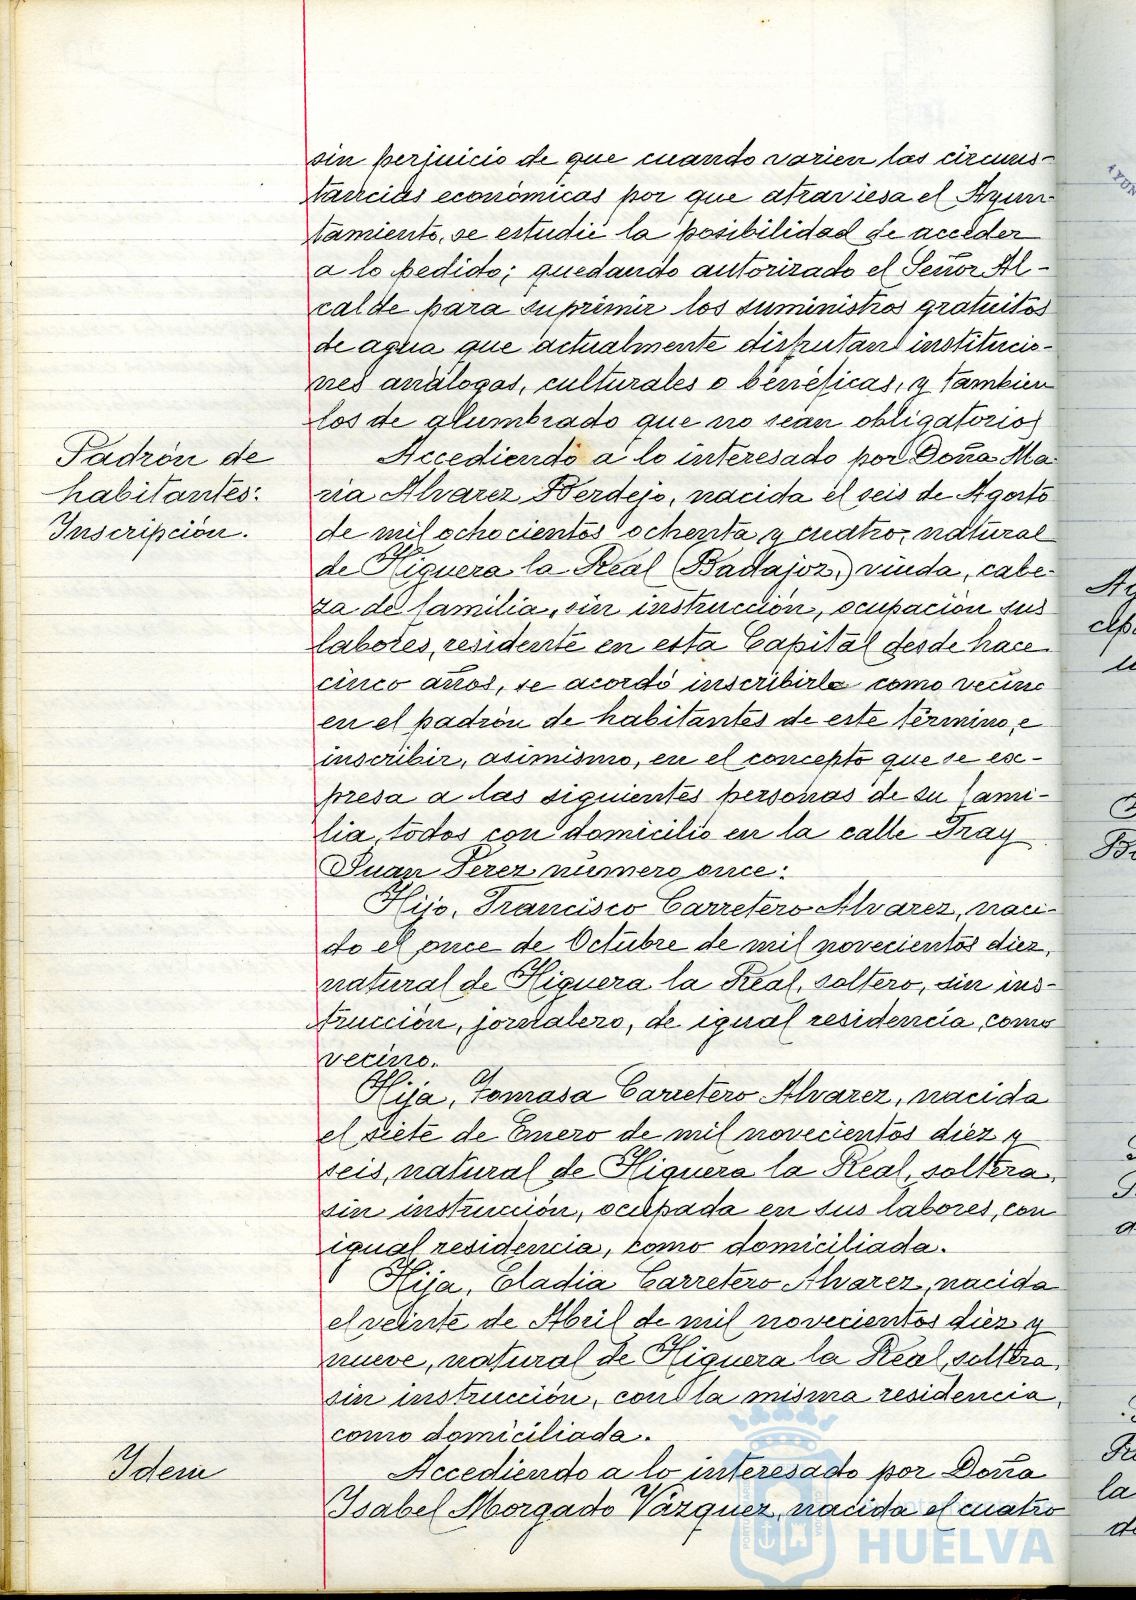 sin perjuicio de que cuando varien las circuns-
tancias económicas por que atraviesa el Ayun-
tamiento, se estudie la posibilidad de acceder
a lo pedido; quedando autorizado el Señor Al-
calde para suprimir los suministros gratuitos
de agua que actualmente disfrutan institucio-
nes análogas, culturales o benéficas, y tambien
los de alumbrado que no sean obligatorios
Padrón de
habitantes:
Inscripción.
Accediendo a lo interesado por Doña Ma-
ria Alvarez Berdejo, nacida el seis de Agosto
de mil ochocientos ochenta y cuatro, natural
de Higuera la Real (Badajoz,) viuda, cabe-
za de familia, sin instrucción, ocupación sus
labores, residente en esta Capital desde hace
cinco años, se acordó inscribirla como vecino
en el padrón de habitantes de este término, e
inscribir, asimismo, en el concepto que se ex-
presa a las siguientes personas de su fami-
lia, todos con domicilio en la calle Fray
Juan Perez número once:
Hijo, Francisco Carretero Alvarez, naci-
do el once de Octubre de mil novecientos diez,
natural de Higuera la Real, soltero, sin ins-
trucción, jornalero, de igual residencia, como
vecino.
Hija, Tomasa Carretero Alvarez, nacida
el siete de Enero de mil novecientos diez y
seis, natural de Higuera la Real, soltera,
sin instrucción, ocupada en sus labores, con
igual residencia, como domiciliada.
Hija, Eladia Carretero Alvarez, nacida
el veinte de Abril de mil novecientos diez y
nueve, natural de Higuera la Real, soltera,
sin instrucción, con la misma residencia,
como domiciliada.
Idem
Accediendo a lo interesado por Doña
Isabel Morgado Vázquez, nacida el cuatro
HUELVA